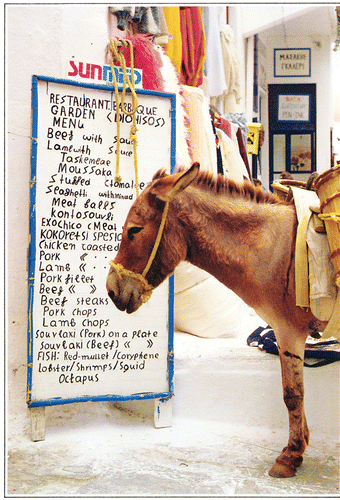 SUNMED
RESTAURANT. BARBEQUE
GARDEN (DIONISOS)
MENU
Beef with Sauce
Lamb with Sauce
Taskemeae
Moussaka
Stuffed
Spaghetti with
Meat balls
kontosouvli
EXOChico (Meat
KOKORETSI SPESIC
Chicken roasted
Pork « ..
Lamb « ..
Pork fillet
Beef « »
Beef steaks
Pork chops
Lamb chops
Souvlaki (Pork) on a plate
Souvlaki (Beef) « »
FISH: Red-mullet/Coryphene
Lobster/Shrimps/Squid
Octapus